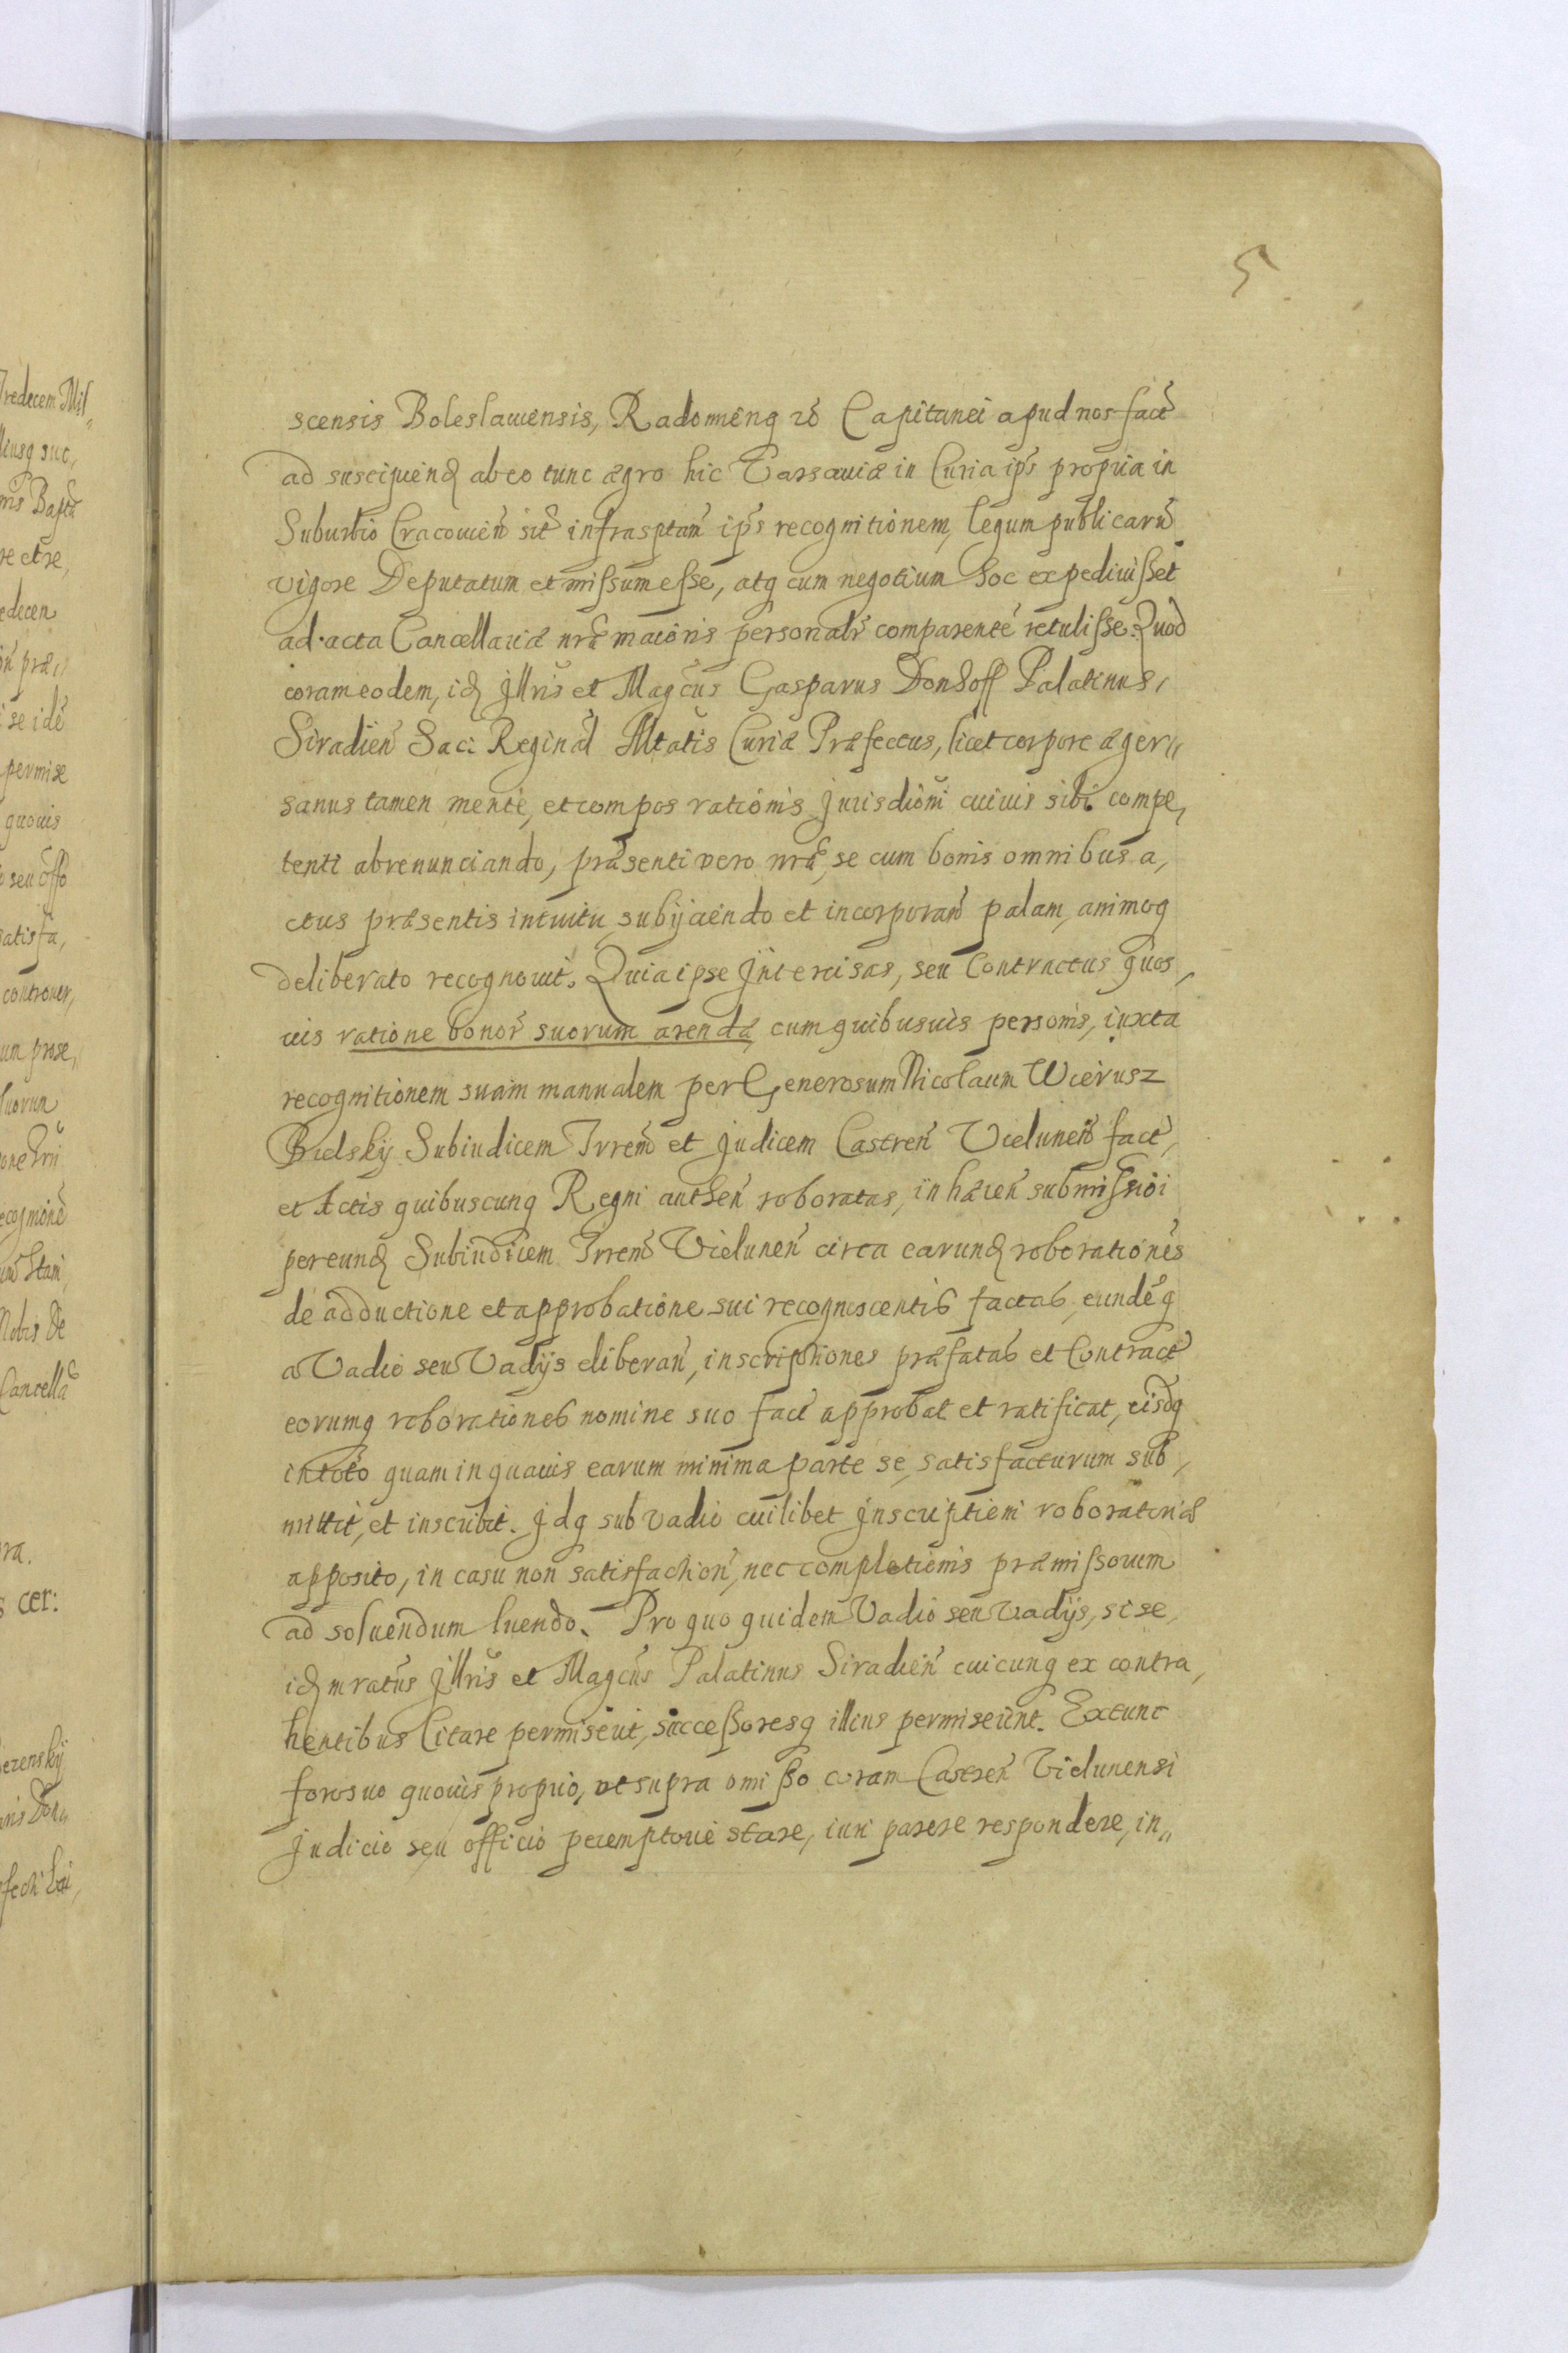 5
scensis Boleslauensis, Radomieng̃ ꝛõ Capitanei apud nos fact̃
ad suscipiend̃ ab eo tunc ægro hic Varsauiæ in Curia ips̃ propria in
Suburbio Cracouien̄ sit̃ infrasptam̃ ips̃ recognitionem, legum publicarũ
vigore Deputatum et missum esse, atq cum negotium hoc expediuisset
ad acta Cancellariæ nr̃æ maioris personalr̃ comparentẽ retulisse. Quod
coram eodem, id̃ Jllris̃ et Magcũs Gasparus Donhoff Palatinus
Siradien̄ Sac: Reginal̃ Mtatis Curiæ Præfectus, licet corpore æger
sanus tamen mente, et compos rationis Jurisdioñi cuiuis sibi compe,
tenti abrenunciando, præsenti vero nr̃æ, se cum bonis omnibus a,
ctus præsentis intuitu subijciendo et incorporan̄ palam, animoq
deliberato recognouit. Quia ipse Jntercisas, seu Contractus quos,
uis ratione bonor̃ suorum arendæ, cum quibusuis personis, iuxta
recognitionem suam manualem per Generosum Nicolaum Wierusz
Bielskij Subiudicem Trren̄ et Judicem Castren̄ Vielunen̄ fact̃,
et Actis quibuscunq Regni authen̄ roboratas, inhæren̄ submissioi
per eund̃ Subiudicem Trren̄ Vielunen̄ circa earund̃ roborationes
de adductione et approbatione sui recognoscentis factas, eundẽq
a Vadio seu Vadijs eliberan̄, inscriptiones præfatas et Contract̃
eorumq roborationes nomine suo fact̃ approbat et ratificat, eisdq
in toto quam in quauis earum minima parte se satisfacturum sub,
mittit, et inscribit. Jdq sub vadio cuilibet Jnscriptioni roboratoriæ
apposito, in casu non satisfaction̄, nec completionis præmissorum
ad soluendum luendo. Pro quo quidem Vadio seu vadijs, si se
id̃ mratus̃ Jllris̃ et Magcũs Palatinus Siradien̄ cuicunq ex contra,
hentibus Citare permiserit, successoresq illius permiserint. Extunc
foro suo quouis proprio, ut supra omisso coram Castren̄ Vielunensi
Judicio seu officio peremptorie stare, iuri parere respondere, in,,